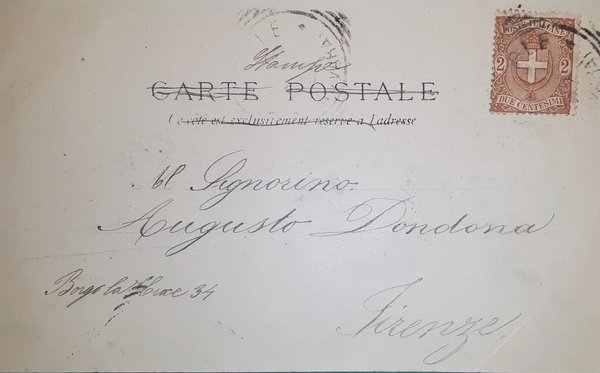 Stampe
CARTE POSTALE
Ce côté est exclusivement réservé à l'adresse
POSTE ITALIANE
2 2
DUE CENTESIMI
Al Signorino
Augusto Dondona
Borgo la Croce 34
Firenze